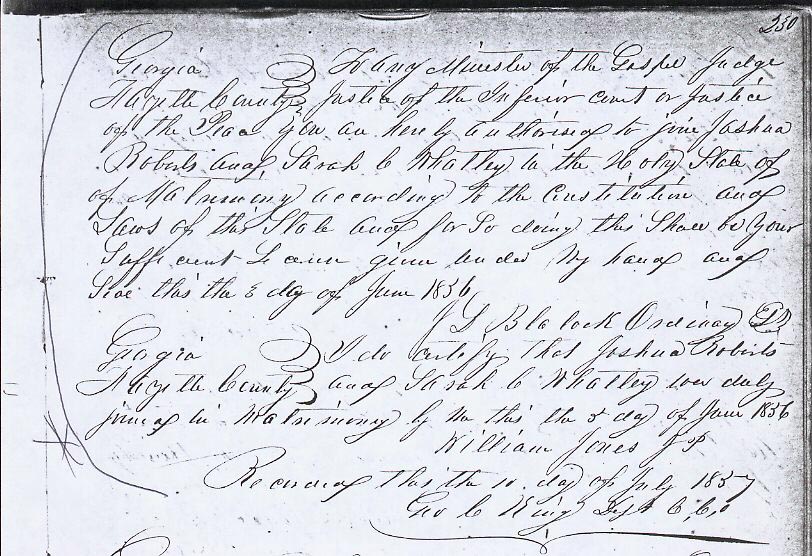 230
Georgia } To any Minister of the Gospel Judge
Fayette County } Justice of the Inferior court or Justice
of the Peace You are hereby authorised to join Joshua
Roberts and Sarah C Whatley in the Holy State of
of Matrimony according to the Constitution and
Laws of this State and for So doing this Shall be Your
Sufficient License given under My hand and
Seal this the day of June 1856
Blalock Ordinary
Georgia } I do certify that Joshua Roberts
Fayette County } and Sarah C Whatley were duly
joined in Matrimony by Me this the day of June 1856
William Jones J P
Recorded this the 10 day of July 1857
Geo C King